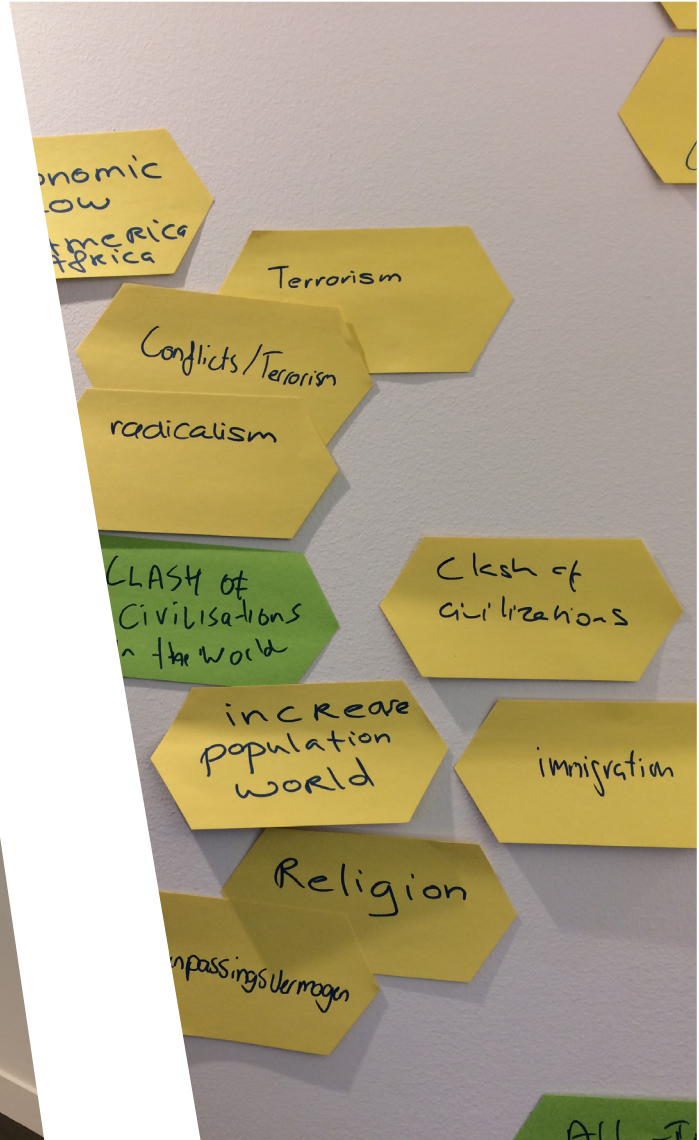 onomic
low
America
Africa
Terrorism
Conflicts/Terrorism
radicalism
CLASH of
Civilisations
in the world
Clash of
civilizations
increase
population
WORLD
immigration
Religion
npassingsvermogen
All-I